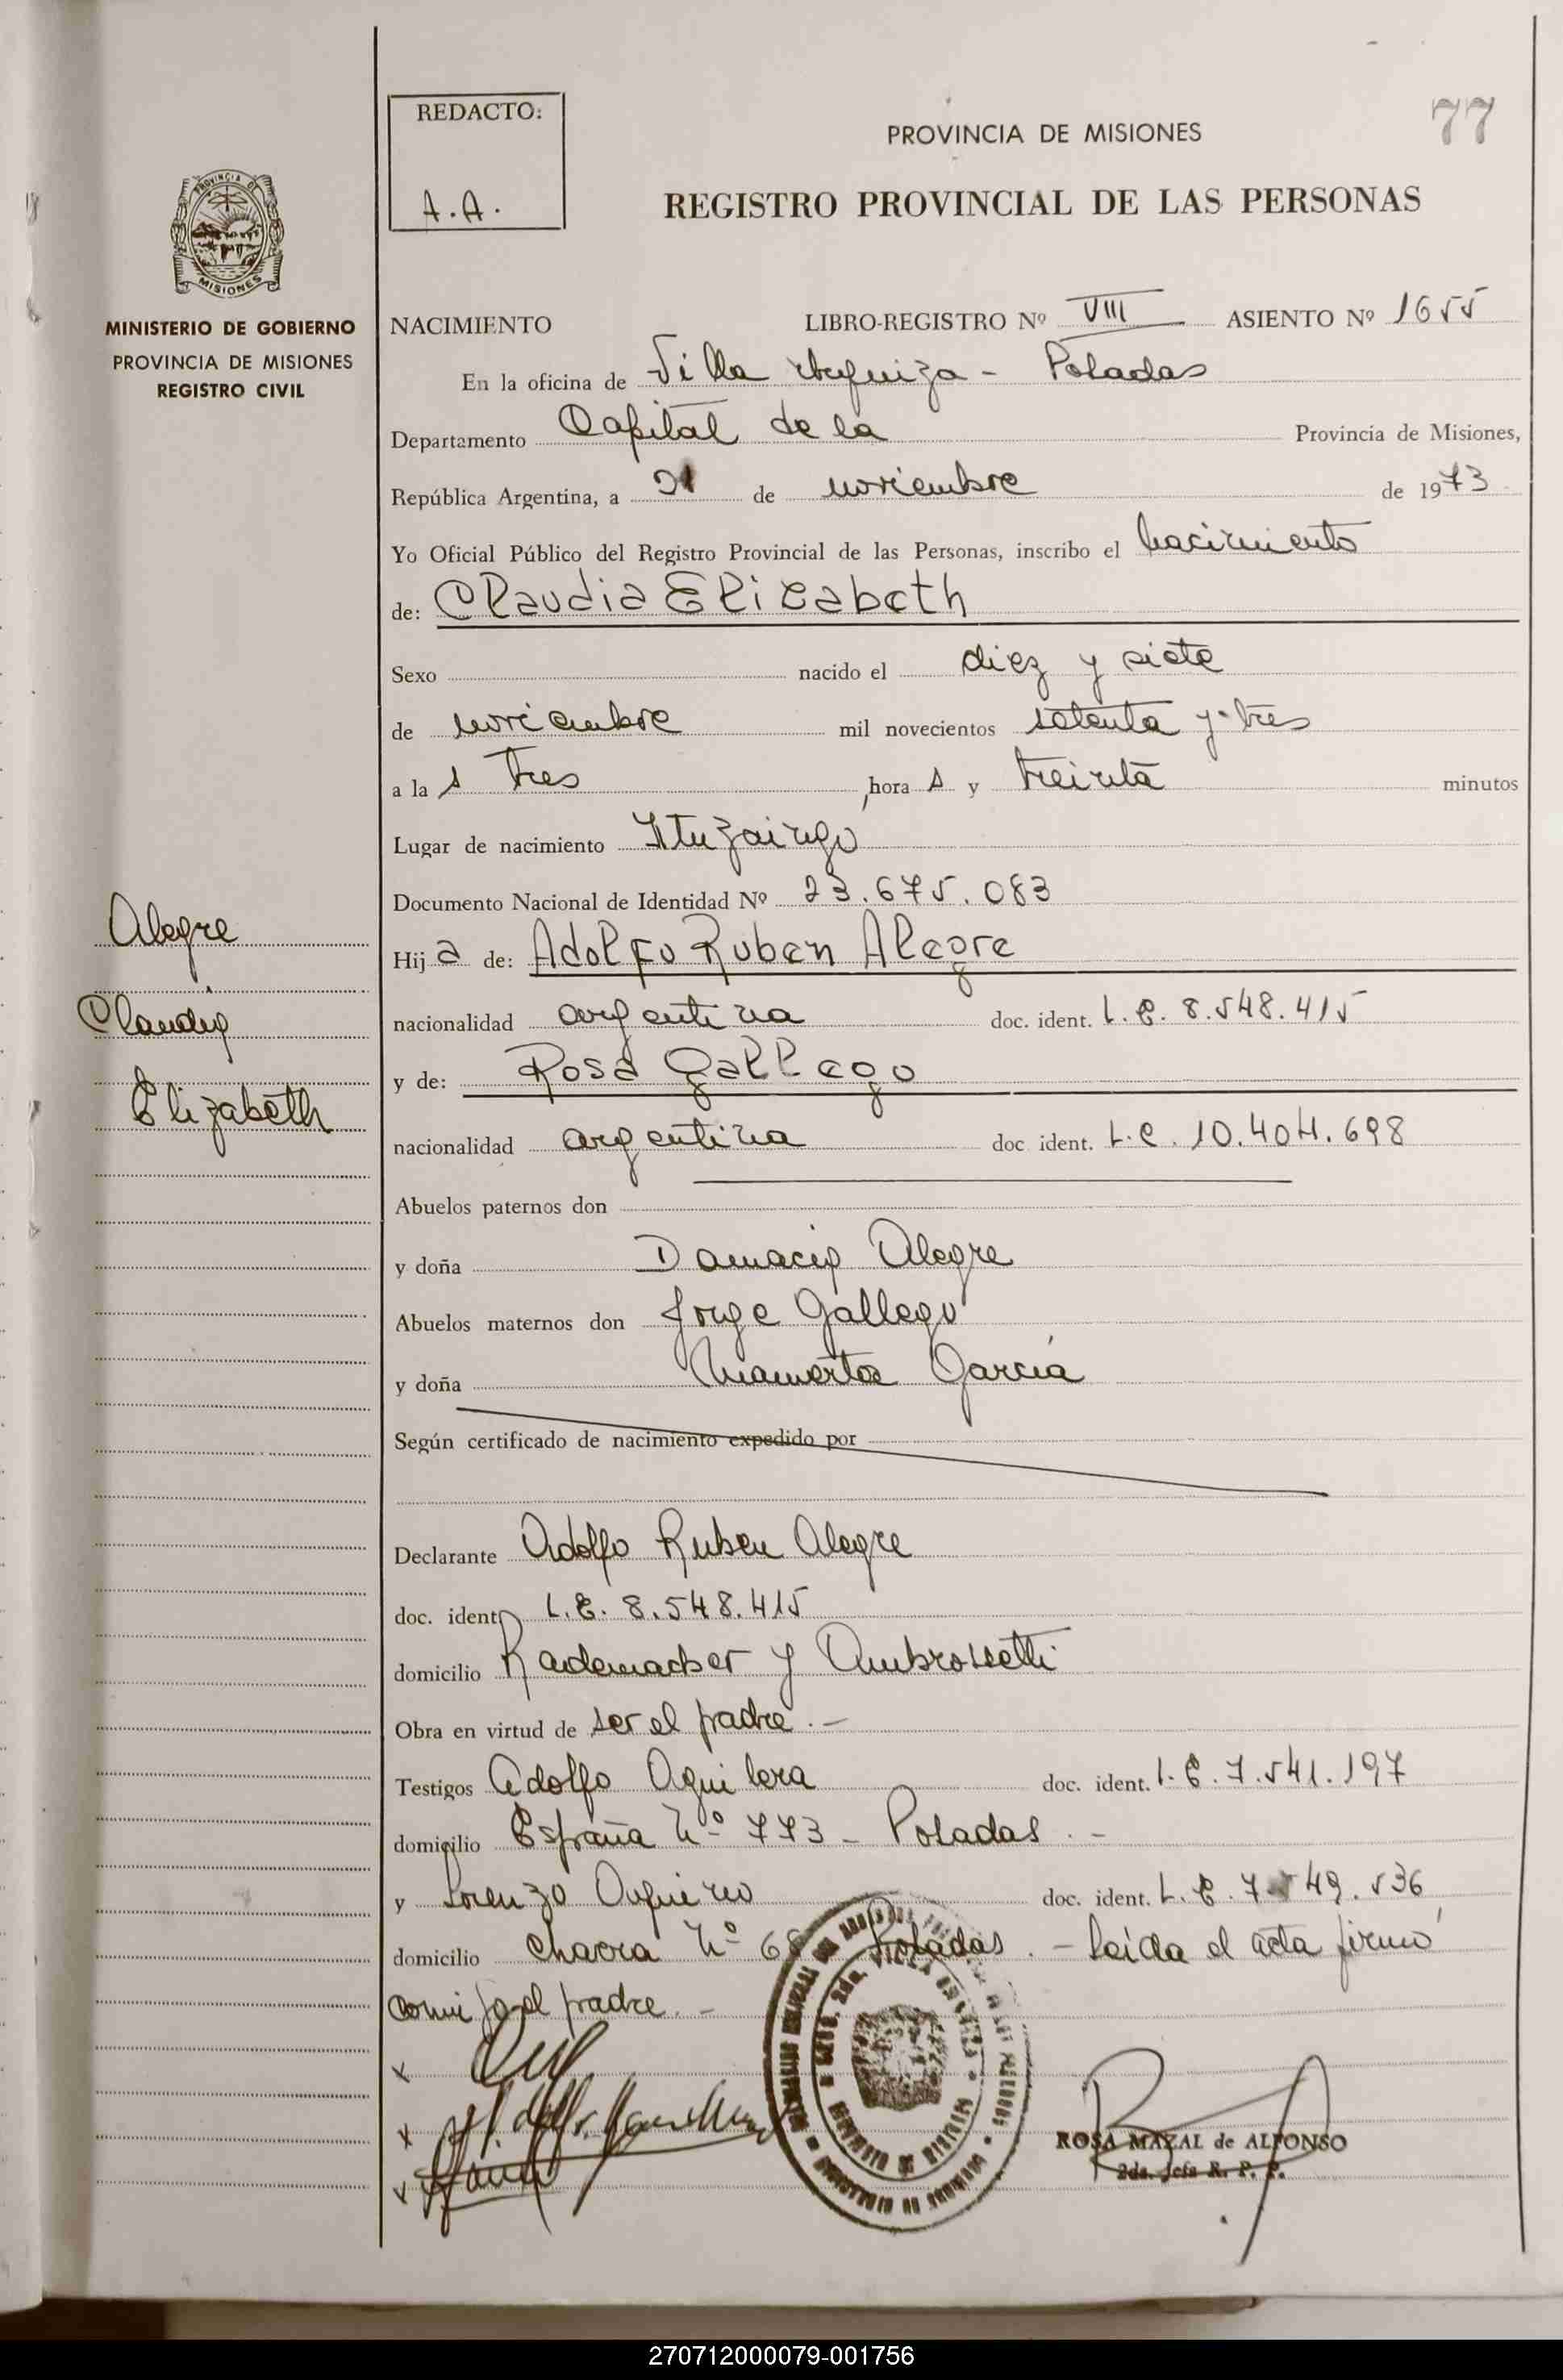 REDACTO:
A.A.
PROVINCIA DE MISIONES
77
REGISTRO PROVINCIAL DE LAS PERSONAS
PROVINCIA DE
MISIONES
MINISTERIO DE GOBIERNO
PROVINCIA DE MISIONES
REGISTRO CIVIL
NACIMIENTO LIBRO-REGISTRO Nº VIII ASIENTO Nº 1655
En la oficina de Villa Urquiza - Posadas
Departamento Capital de la Provincia de Misiones,
República Argentina, a 21 de noviembre de 1973
Yo Oficial Público del Registro Provincial de las Personas, inscribo el nacimiento
de: Claudia Elizabeth
Sexo nacido el diez y siete
de noviembre mil novecientos setenta y tres
a la s tres hora s y treinta minutos
Lugar de nacimiento Ituzaingo
Documento Nacional de Identidad Nº 23.675.083
Alegre
Hij a de: Adolfo Ruben Alegre
Claudia
nacionalidad argentina doc. ident. L.E. 8.548.415
y de: Rosa Gallego
Elizabeth
nacionalidad argentina doc ident. L.C. 10.404.698
Abuelos paternos don
y doña Damacia Alegre
Abuelos maternos don Jorge Gallego
y doña Mamerta García
Según certificado de nacimiento expedido por
Declarante Adolfo Ruben Alegre
doc. ident L.E. 8.548.415
domicilio Rademacher y Ambrossetti
Obra en virtud de ser el padre.-
Testigos Adolfo Aguilera doc. ident. L.E. 7.541.197
domicilio España Nº 773 - Posadas.-
y Lorenzo doc. ident. L.E. 7.549.536
domicilio Chacra Nº 68 Posadas.- Leída el acta firmó
conmigo el padre.-
x
x
x
ROSA MAZAL de ALFONSO
2da. Jefa R. P. P.
270712000079-001756